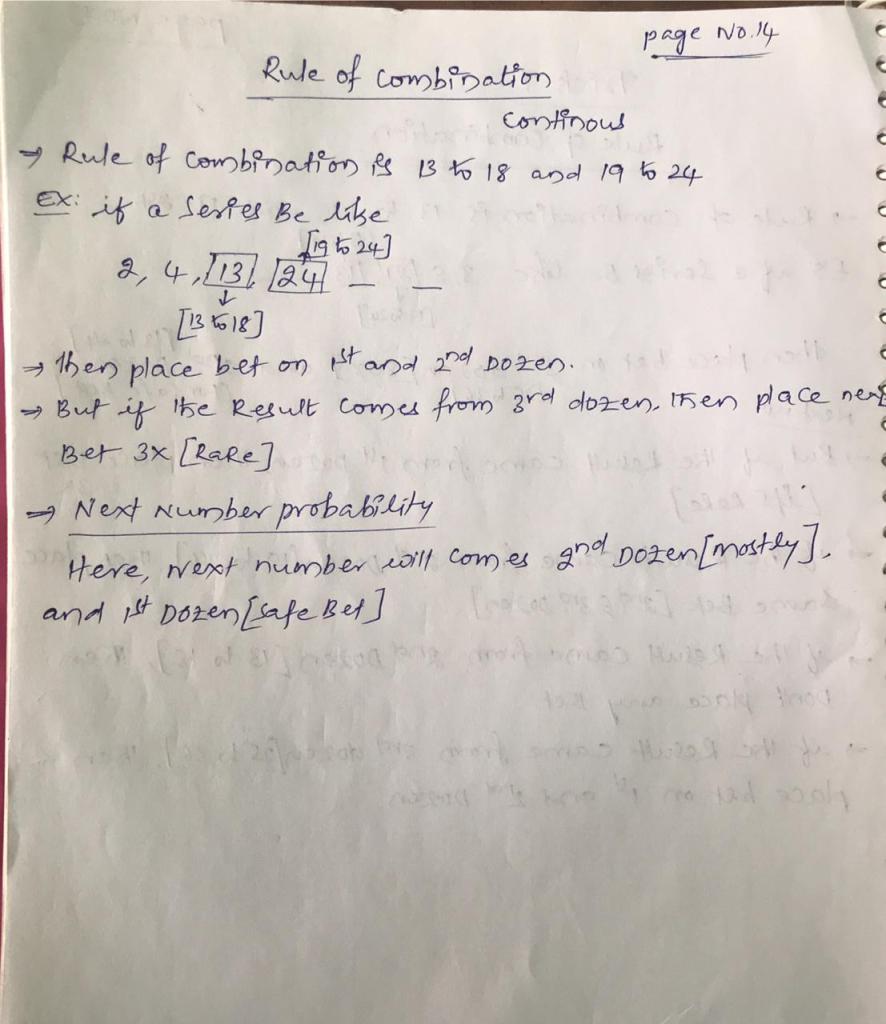 page No.14
Rule of Combination
Continous
→ Rule of Combination is 13 to 18 and 19 to 24
Ex: if a Series Be like
[19 to 24]
2, 4, 13, 24 _ _
[13 to 18]
→ Then place bet on 1st and 2nd Dozen.
→ But if the Result comes from 3rd dozen, Then place nex
Bet 3x [RaRe]
→ Next Number probability
Here, Next number will comes 2nd Dozen [mostly],
and 1st Dozen [safe Bet]